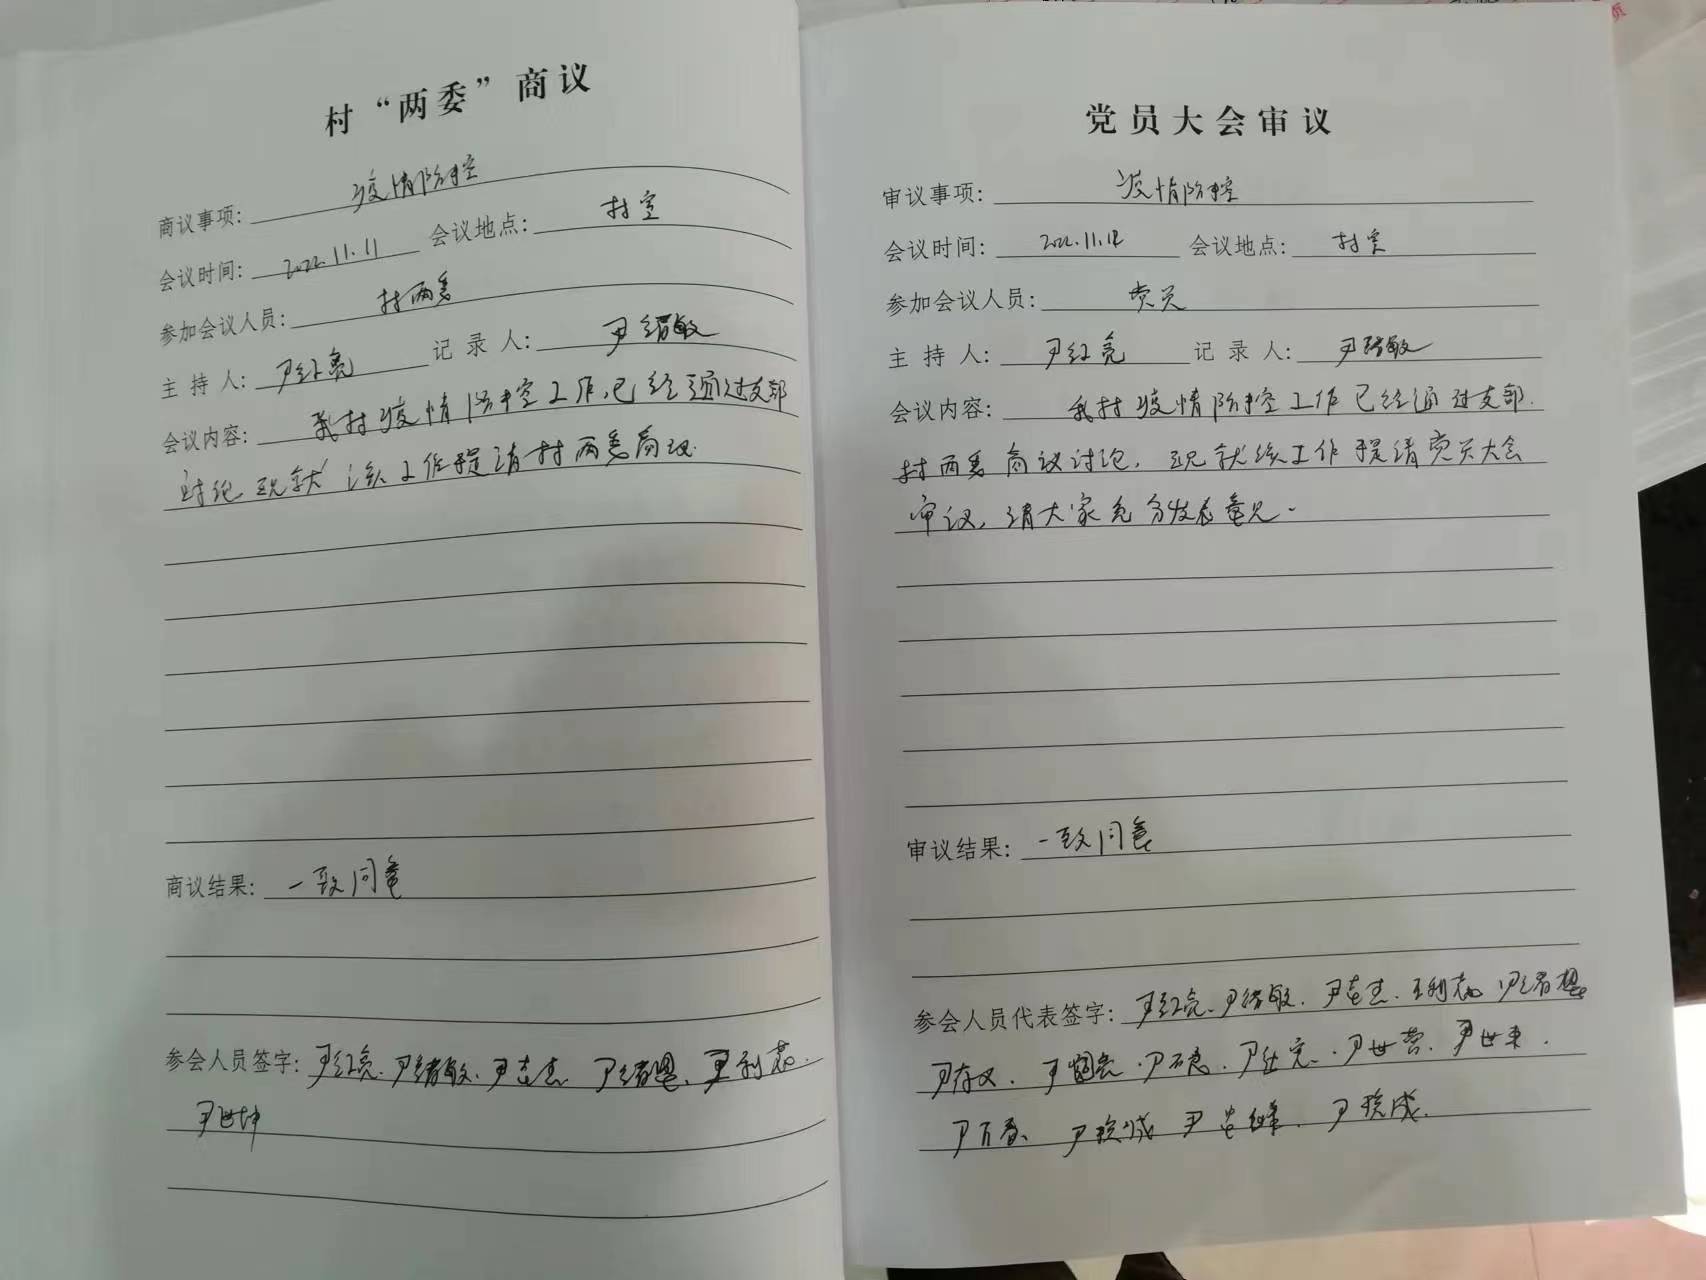 村“两委”商议
商议事项：疫情防控
会议时间：2022.11.11 会议地点：村室
参加会议人员：村两委
主持人：尹红亮 记录人：尹绪敏
会议内容：我村疫情防控工作，已经通过支部
讨论 现就该工作提请村两委商议
商议结果：一致同意
参会人员签字：尹红亮、尹绪敏、尹志杰 尹绪恩、王利荷
尹世坤
党员大会审议
审议事项：疫情防控
会议时间：2022.11.12 会议地点：村室
参加会议人员：党员
主持人：尹红亮 记录人：尹绪敏
会议内容：我村疫情防控工作已经通过支部
村两委商议讨论，现就该工作提请党员大会
审议，请大家充分发表意见
审议结果：一致同意
参会人员代表签字：尹红亮、尹绪敏、尹志杰、王利荷 尹绪恩
尹存义、尹世营、尹世来
尹万春、尹振成